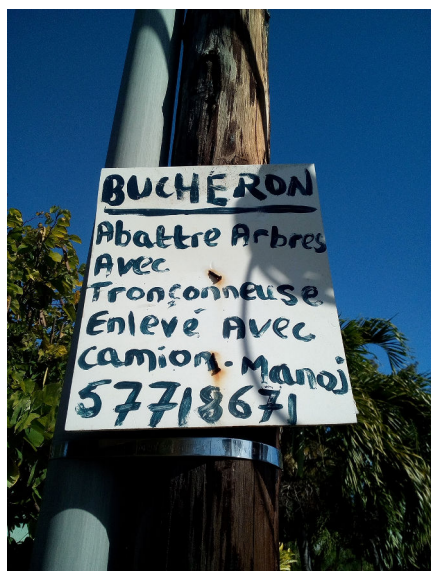 BUCHERON
Abattre Arbres
Avec
Tronçonneuse
Enlevé Avec
camion. Manoj
57718671